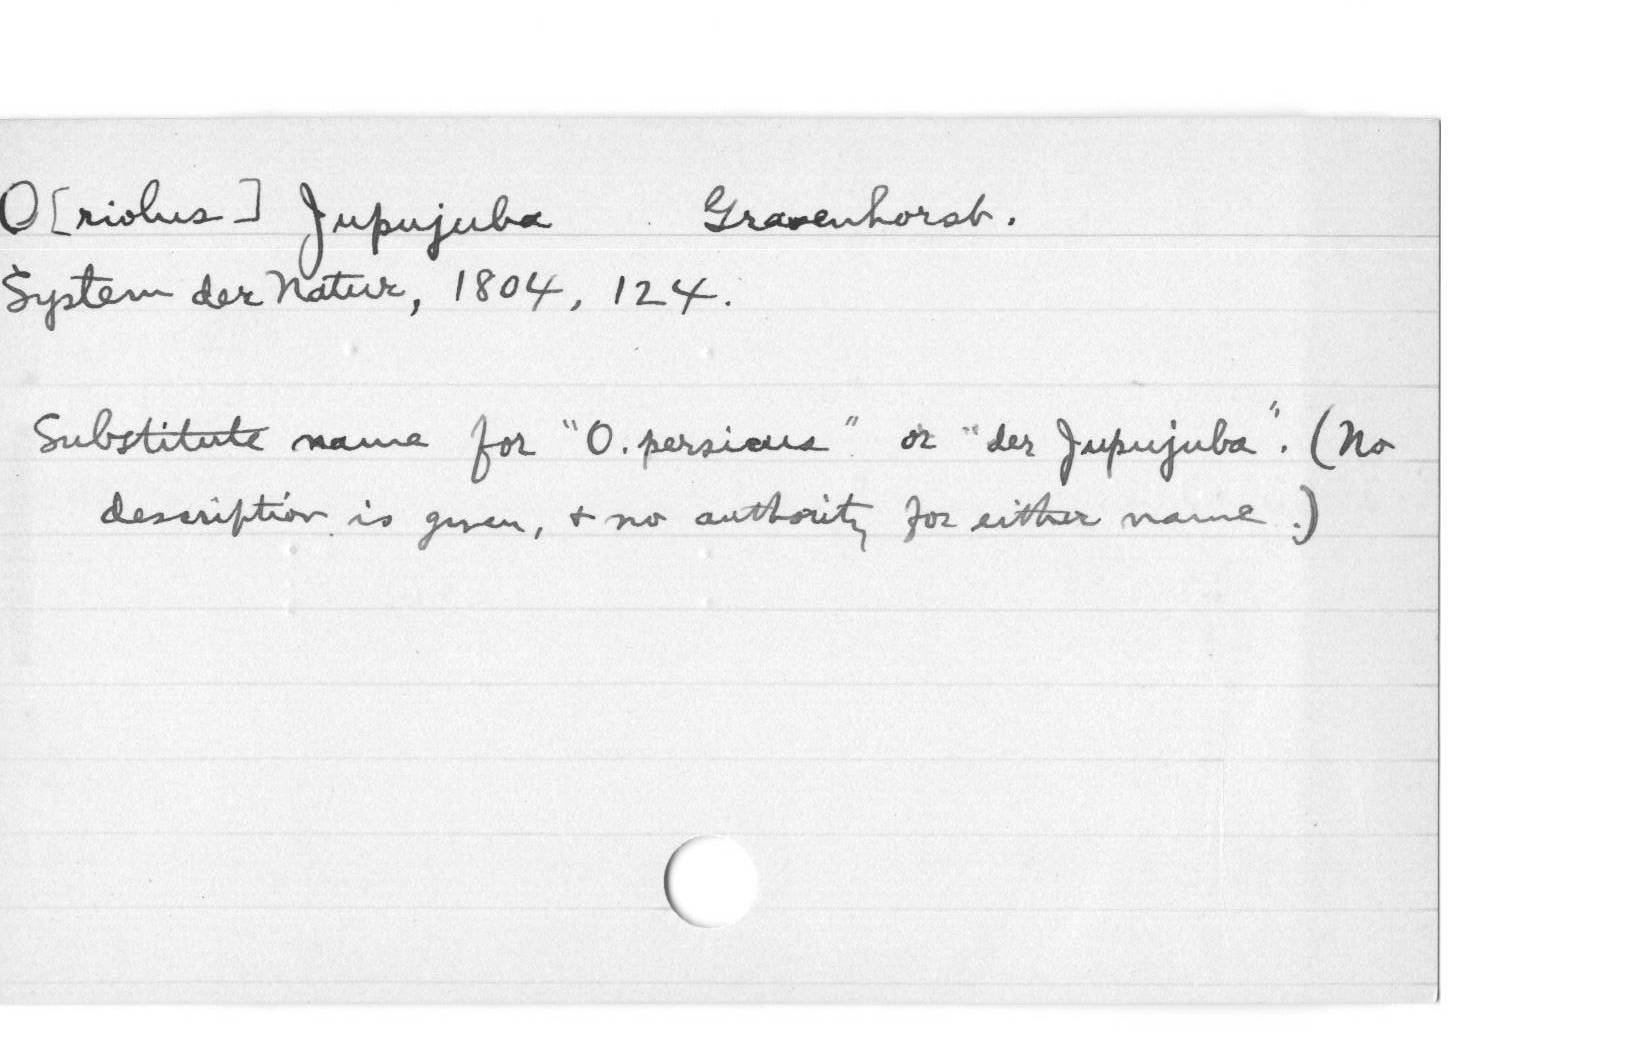 O[riolus] Jupujuba Gravenhorst.
System der Natur, 1804, 124.
Substitute name for "O. persicus" or "der Jupujuba". (No
description is given, & no authority for either name.)